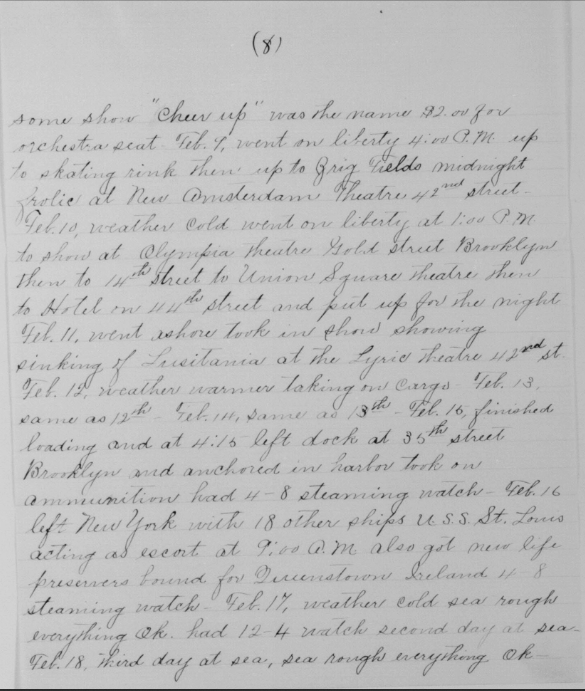 (8)
some show "Cheer up" was the name $2.00 for
orchestra seat. Feb. 9, went on liberty 4:00 P.M. up
to skating rink then up to Zrig Fields midnight
frolic at New Amsterdam Theatre 42nd street-
Feb. 10, weather cold went on liberty at 1:00 P.M
to show at Olympia theatre Gold street Brooklyn
then to 14th street to Union Square theatre then
to Hotel on 44th street and put up for the night
Feb. 11, went ashore took in show showing
sinking of Lusitania at the Lyric theatre 42nd st.
Feb. 12, weather warmer taking on cargo - Feb. 13,
same as 12th - Feb. 14, same as 13th - Feb. 15, finished
loading and at 4:15 left dock at 35th street
Brooklyn and anchored in harbor took on
ammunition had 4-8 steaming watch - Feb. 16
left New York with 18 other ships U.S.S. St. Louis
acting as escort at 9:00 A.M also got new life
preservers bound for Queenstown Ireland 4-8
steaming watch - Feb. 17, weather cold sea rough
everything Ok. had 12-4 watch second day at sea-
Feb. 18, third day at sea, sea rough everything Ok-